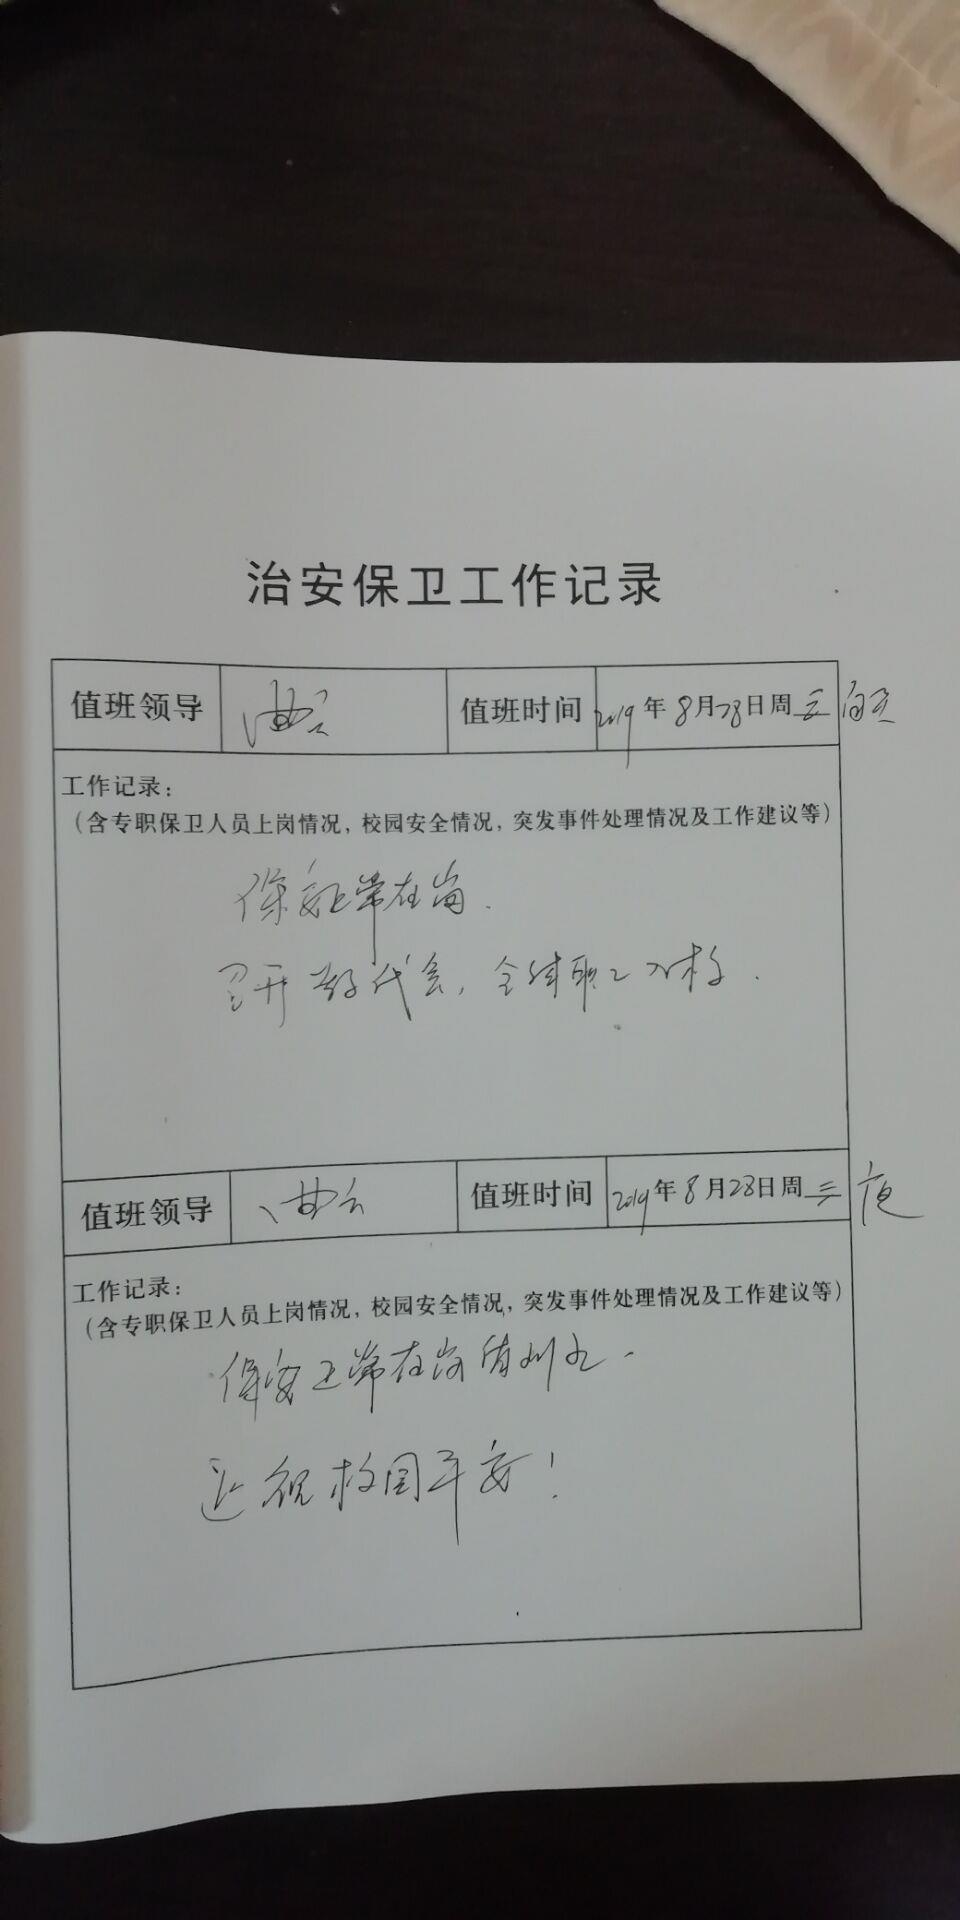 治安保卫工作记录
值班领导 曲云 值班时间 2019年8月28日周三 白天
工作记录：
（含专职保卫人员上岗情况，校园安全情况，突发事件处理情况及工作建议等）
保安正常在岗.
召开教代会，全体职工入校.
值班领导 曲云 值班时间 2019年8月28日周三 夜
工作记录：
（含专职保卫人员上岗情况，校园安全情况，突发事件处理情况及工作建议等）
保安正常在岗
祝校园平安！